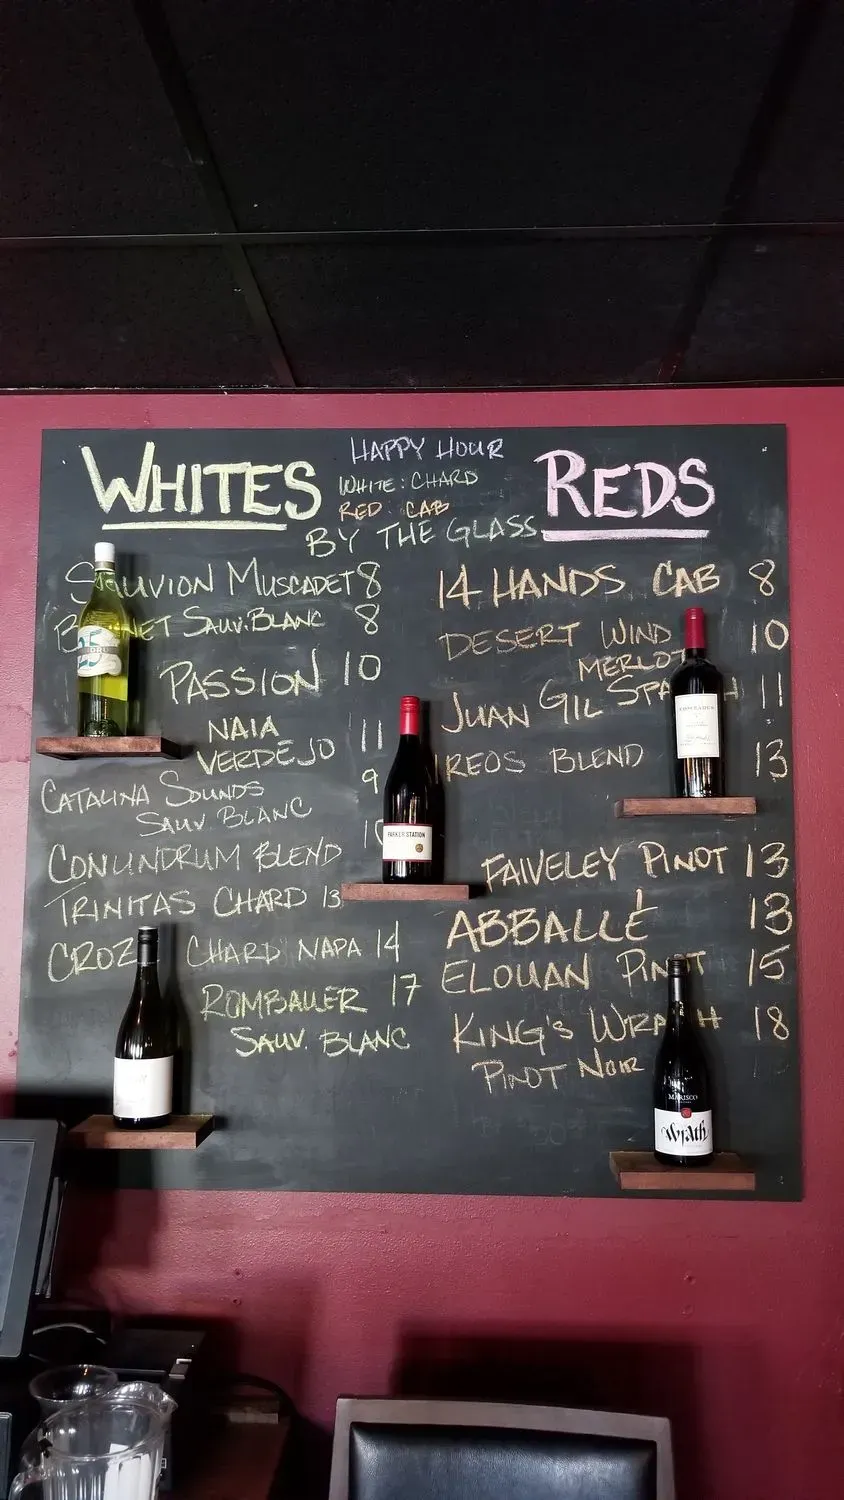 HAPPY HOUR
WHITE: CHARD
RED CAB
WHITES
REDS
BY THE GLASS
SAUVION MUSCADET 8
SAUV. BLANC 8
PASSION 10
NAIA 11
VERDEJO
CATALINA SOUNDS 9
SAUV. BLANC
CONUNDRUM BLEND
TRINITAS CHARD 13
CHARD NAPA 14
ROMBAUER 17
SAUV. BLANC
14 HANDS CAB 8
DESERT WIND 10
MERLOT
JUAN GIL 11
BLEND 13
FAIVELEY PINOT 13
ABBALLÉ 13
ELOUAN PINOT 15
KING'S WRATH 18
PINOT NOIR
25
PARKER STATION
MARISCO
Wrath